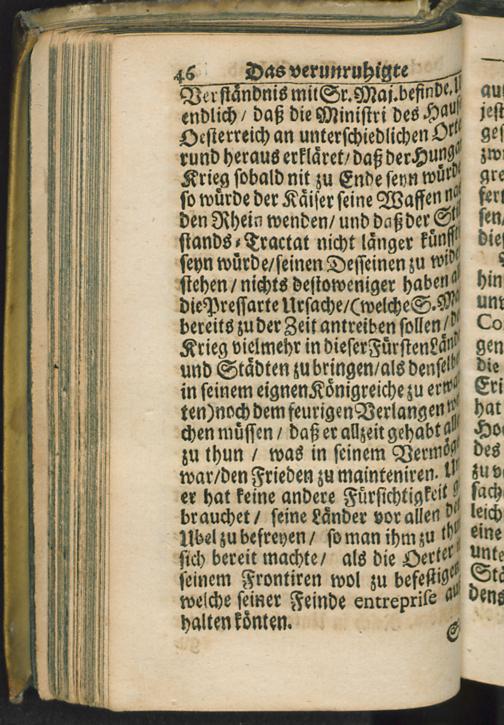 46 Das verunruhigte
Verständnis mit Sr. Maj. befinde.
endlich / daß die Ministri des
Oesterreich an unterschiedlichen
rund heraus erkläret / daß der
Krieg sobald nit zu Ende seyn
so würde der Käiser seine Waffen
den Rhein wenden / und daß der
stands-Tractat nicht länger
seyn würde / seinen Desseinen zu
stehen / nichts destoweniger haben
die Pressarte Ursache / (welche S.
bereits zu der Zeit antreiben sollen /
Krieg vielmehr in dieser Fürsten
und Städten zu bringen / als
in seinem eignen Königreiche zu
ten) noch dem feurigen Verlangen
chen müssen / daß er allzeit gehabt
zu thun / was in seinem
war / den Frieden zu mainteniren.
er hat keine andere Fürsichtigkeit
brauchet / seine Länder vor allen
Ubel zu befreyen / so man ihm zu
sich bereit machte / als die Oerter
seinem Frontiren wol zu
welche seiner Feinde entreprise
halten könten.
hin
Co
gen
die
Eri
hat
des
sach
leich
eine
unte
Stä
dens